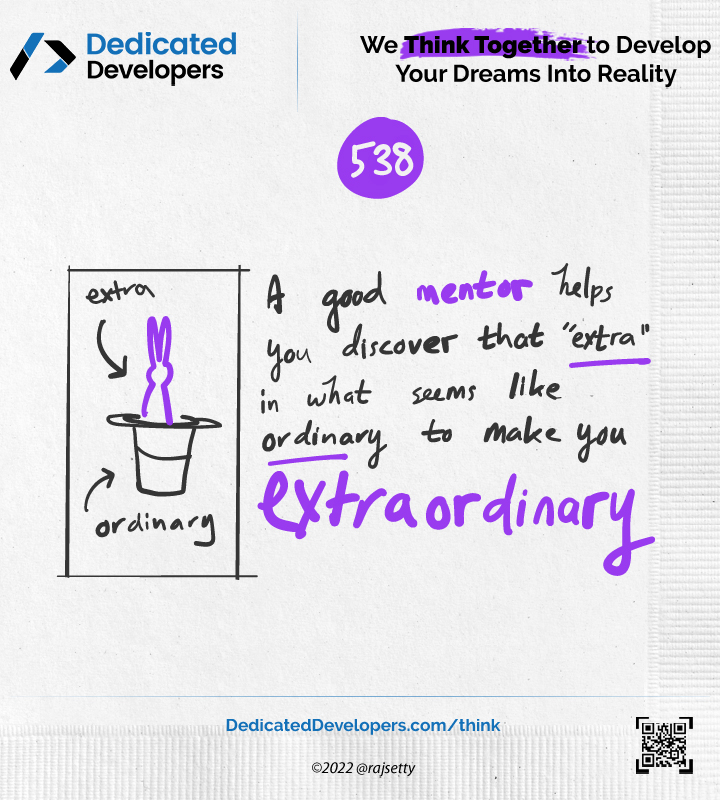 Dedicated
Developers
We Think Together to Develop
Your Dreams Into Reality
538
extra
ordinary
A good mentor helps
you discover that "extra"
in what seems like
ordinary to make you
extraordinary
DedicatedDevelopers.com/think
©2022 @rajsetty